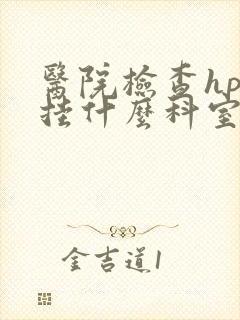 醫院檢查hp
挂什麽科室
金吉道1